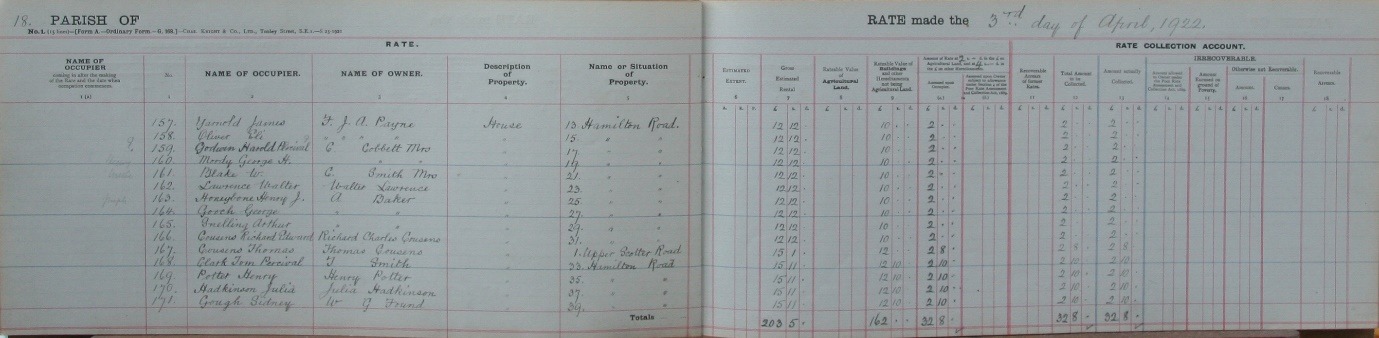 18. PARISH OF
No. 1. (15 lines)—[Form A.—Ordinary Form.— G. 168.]—CHAS. KNIGHT & CO., LTD., Tooley Street, S.E.1.
RATE made the 3rd day of April, 1922.
RATE.
RATE COLLECTION ACCOUNT.
NAME OF OCCUPIER coming in after the making of the Rate and the date when occupation commences. 1 (a)
No. 1
NAME OF OCCUPIER. 2
NAME OF OWNER. 3
Description of Property. 4
Name or Situation of Property. 5
ESTIMATED EXTENT. 6
Gross Estimated Rental 7
Rateable Value of Agricultural Land. 8
Rateable Value of Buildings and other Hereditaments not being Agricultural Land. 9
Recoverable Arrears of former Rates. 11
Total Amount to be Collected. 12
Amount actually Collected. 13
IRRECOVERABLE.
Otherwise not Recoverable.
Amount. 16
Causes. 17
Recoverable Arrears. 18
157. Yarnold James F. J. A. Payne House 13 Hamilton Road. 12 12 10 2 2 2
158. Oliver Eli " " " " 15. " " 12 12 10 2 2 2
159. Godwin Harold Percival C Cobbett Mrs " 17. " " 12 12 10 2 2 2
160. Moody George H. " " " 19. " " 12 12 10 2 2 2
161. Blake W. C. Smith Mrs " 21. " " 12 12 10 2 2 2
162. Lawrence Walter Walter Lawrence " 23. " " 12 12 10 2 2 2
163. Honeybone Henry J. A Baker " 25. " " 12 12 10 2 2 2
164. Gooch George " " " 27. " " 12 12 10 2 2 2
165. Snelling Arthur " " " 29. " " 12 12 10 2 2 2
166. Cousens Richard Edward Richard Charles Cousens " 31. " " 12 12 10 2 2 2
167. Cousens Thomas Thomas Cousens " 1. Upper Scotter Road 15 1 12 2 8 2 8 2 8
168. Clark Tom Percival T Smith " 33. Hamilton Road 15 11 12 10 2 10 2 10 2 10
169. Potter Henry Henry Potter " 35. " " 15 11 12 10 2 10 2 10 2 10
170. Hadkinson Julia Julia Hadkinson " 37. " " 15 11 12 10 2 10 2 10 2 10
171. Gough Sidney W G Found " 39. " " 15 11 12 10 2 10 2 10 2 10
Totals 203 5 162 32 8 32 8 32 8